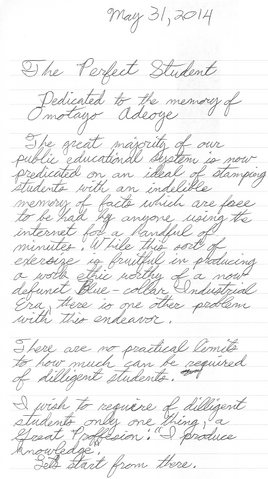 May 31, 2014
The Perfect Student
Dedicated to the memory of
Omotayo Adeoye
The great majority of our
public educational system is now
predicated on an ideal of stamping
students with an indelible
memory of facts which are free
to be had by anyone using the
internet for a handful of
minutes. While this sort of
exercise is fruitful in producing
a work ethic worthy of a now
defunct Blue-collar Industrial
Era, there is one other problem
with this endeavor.
There are no practical limits
to how much can be required
of dilligent students.
I wish to require of dilligent
students only one thing, a
Great Proffesion: "I produce
knowledge."
Lets start from there.